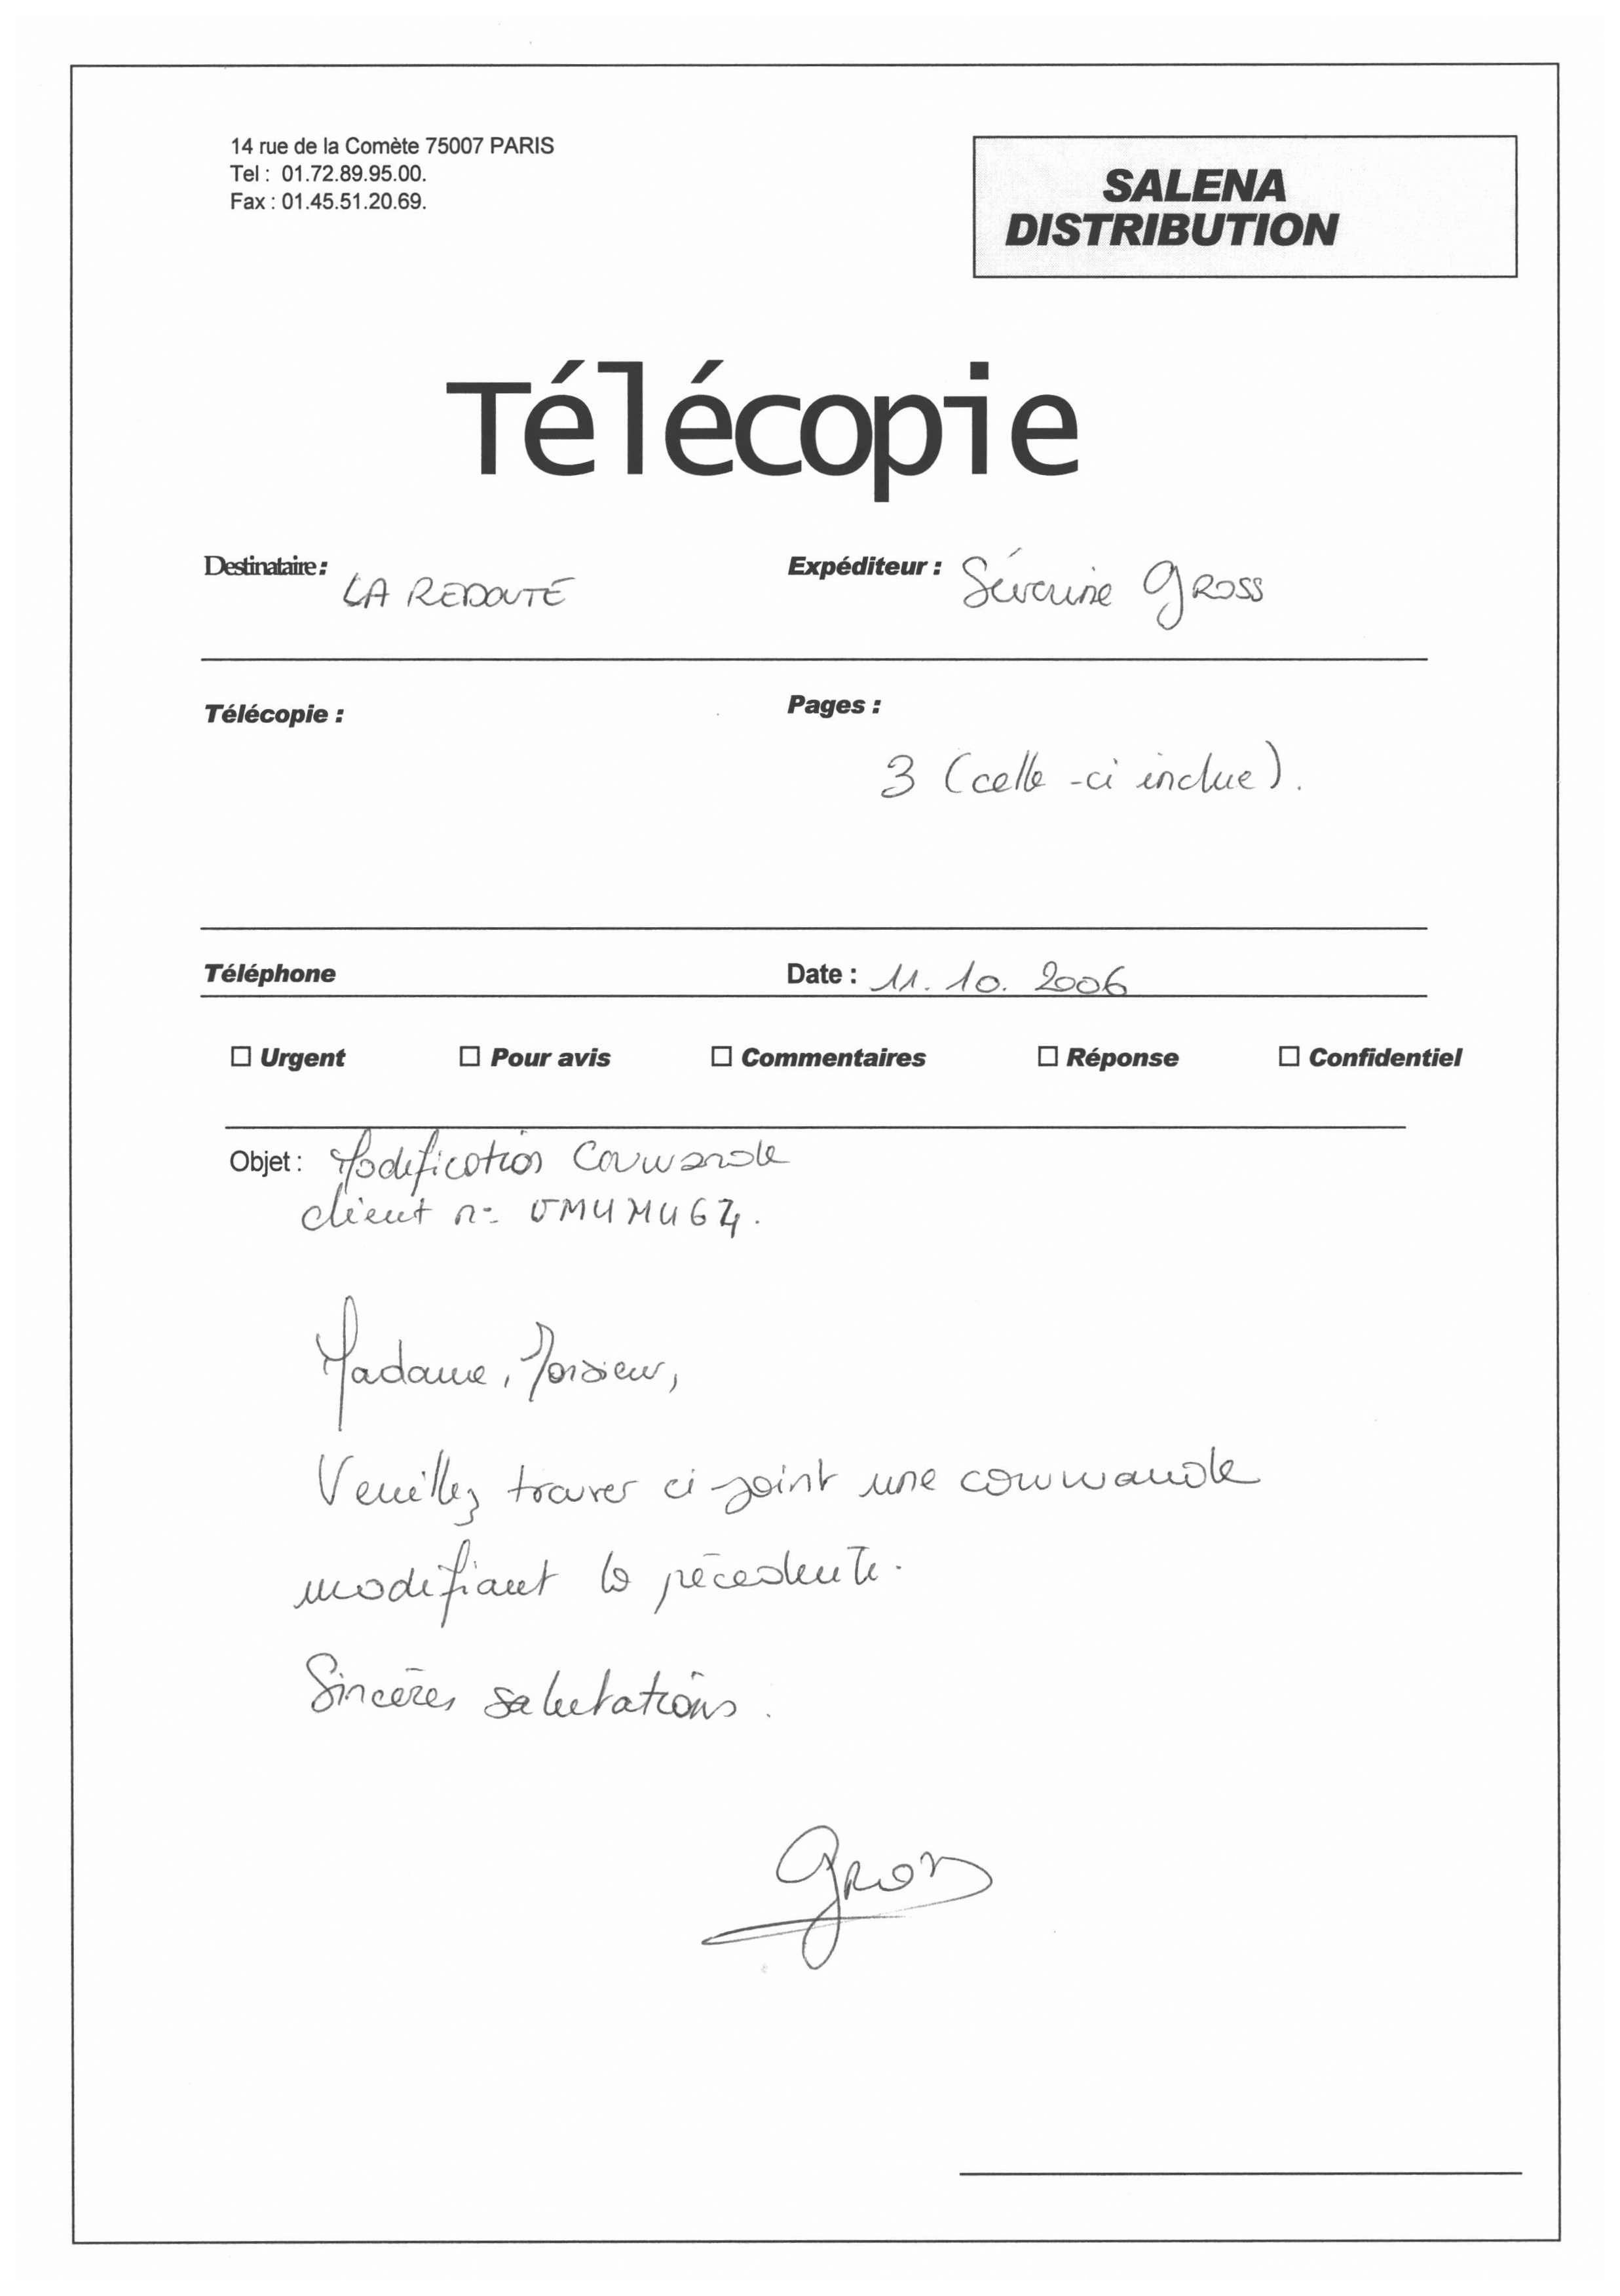 14 rue de la Comète 75007 PARIS
Tel : 01.72.89.95.00.
Fax : 01.45.51.20.69.
SALENA
DISTRIBUTION
Télécopie
Destinataire : LA REDOUTE
Expéditeur : Séverine GROSS
Télécopie :
Pages :
3 (celle-ci inclue).
Téléphone
Date : 11.10.2006
☐ Urgent ☐ Pour avis ☐ Commentaires ☐ Réponse ☐ Confidentiel
Objet : Modification Commande
client n°
Madame, Monsieur,
Veuillez trouver ci-joint une commande
modifiant la précedente.
Sincères salutations.
Gross